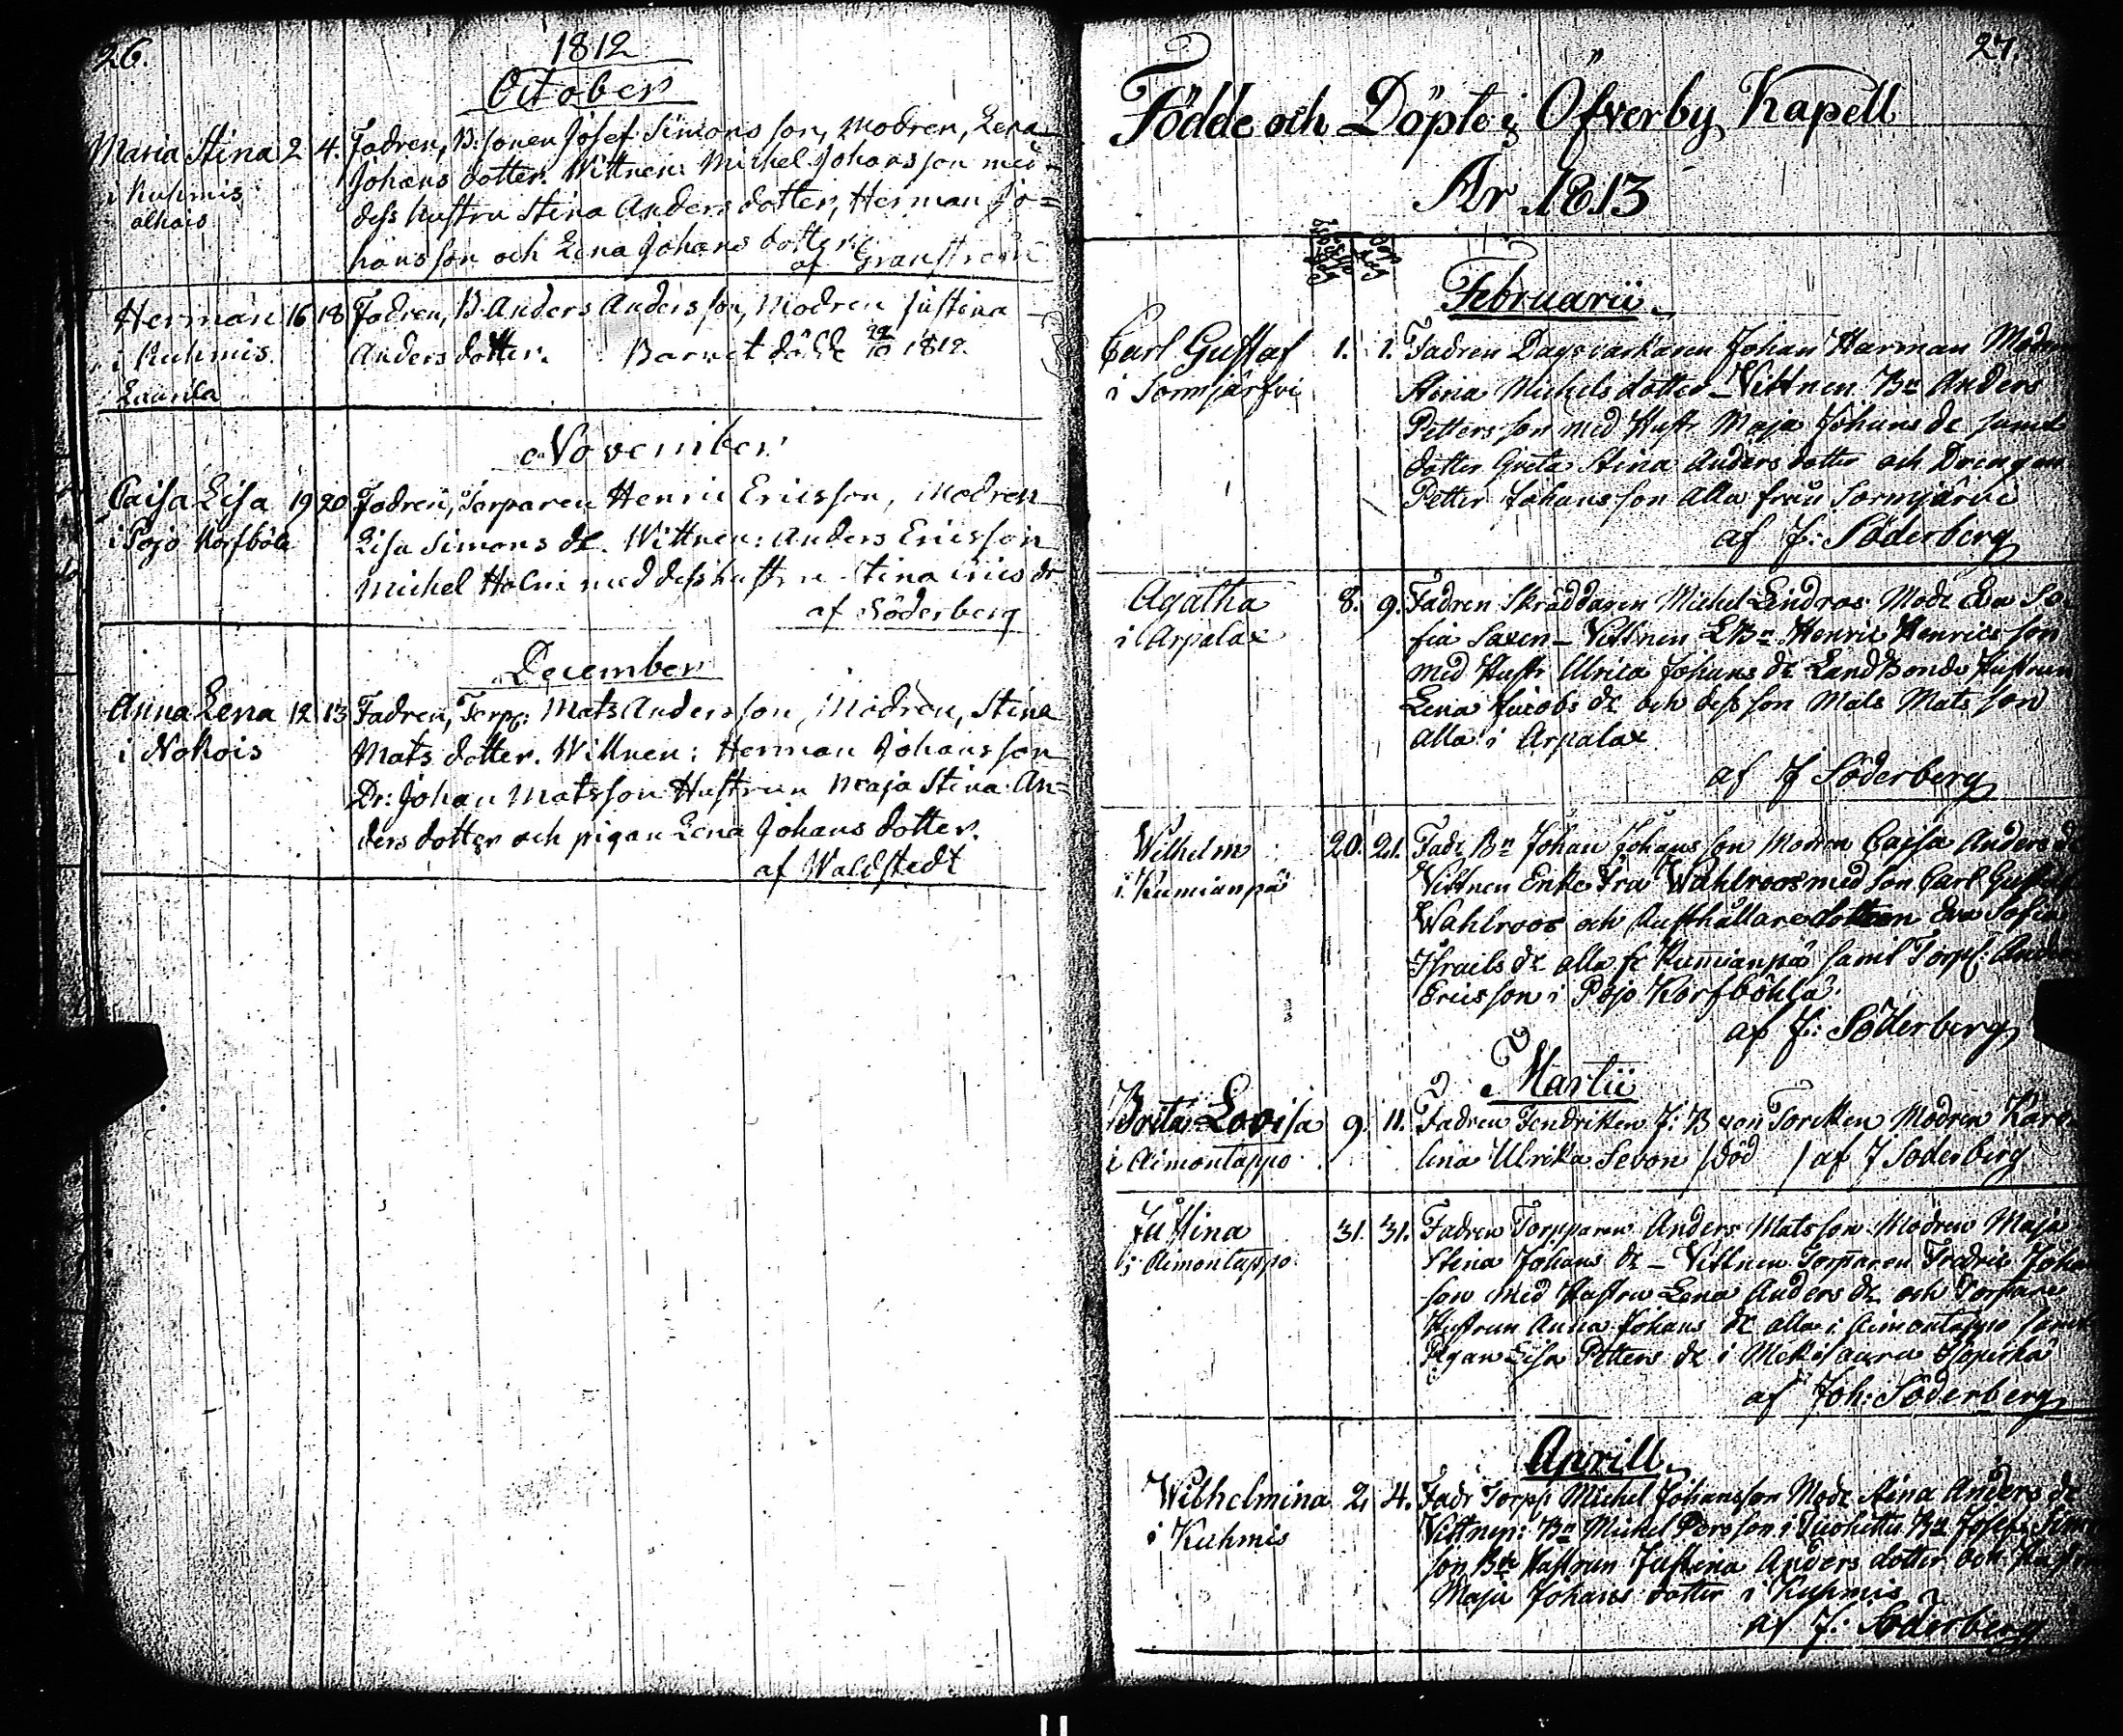 26.
1812
October
Maria Stina 2 4. Fadren, B: sonen Josef Simons son, Modren, Lena
Johans dotter. Wittnen: Michel Johansson med
i Kuhmis
dess hustru Stina Anders dotter, Herman Jo=
alhais
hansson och Lena Johans dotter.
af Granström
Herman 16 18 Fadren, B. Anders Andersson, Modren Justina
i Kuhmis. Anders dotter. Barnet dödde 22/10 1812.
Laurila
November
Caisa Lisa 19 20 Fadren, Torparen Henric Ericsson, Modren
i Pojo Korfböle Lisa Simons dr. Wittnen: Anders Ericsson
Michel Holm med dess hustru Stina Erics dr
af Söderberg
December
Anna Lena 12 13 Fadren, Torp: Mats Andersson, Modren, Stina
i Nokois Mats dotter. Wittnen: Herman Johansson
Dr: Johan Matsson Hustrun Maja Stina An=
ders dotter och pigan Lena Johans dotter.
af Waldstedt
27.
Födde och Döpte i Öfverby Kapell
År 1813
Februarii
Carl Gustaf 1. 1. Fadren Dagsvarkaren Johan Harman Modren
i Sormjärfvi Stina Michels dotter - Vittnen Bn Anders
Petters son med Hustr Maja Johans dr samt
dotter Greta Stina Anders dotter och Drengen
Petter Johans son alla från Sormjärvi
af J: Söderberg
Agatha 8. 9. Fadren Skräddaren Michel Lindros Modr Eva So
i Arpalax fia Saxen - Vittnen LBn Henric Henrics son
med Hustr Ulrica Johans dr Landbonde Hustrun
Lena Jacobs dr och dess son Mats Mats son
alla i Arpalax
af J Söderberg
Wilhelm 20. 21. Fadr Bn Johan Johans son Modren Caisa Anders dr
i Kumianpä Vittnen Enke Fra Wahlroos med son Carl Gustaf
Wahlroos och Rusthållare dottren Eva Sofia
Israils dr alla fr Kumianpä samt Torp:
Ericsson i Pojo Korfböhla.
af J: Söderberg
Martii
Brita Lovisa 9. 11. Fadren Fendriken J: B von Torcken Modren Karo
i Aimontappo lina Ulrika Sevon / död / af J Söderberg
Justina 31. 31. Fadren Torpparen Anders Matsson Modren Maja
i Aimontappo. Stina Johans dr - Vittnen Torparen Fredric Joha
son med Hustru Lena Anders dr och Torpare
Hustrun Anna Johans dr alla i Aimontappo samt
Pigan Lisa Petters dr i
af Joh: Söderberg
Aprill
Wilhelmina 2. 4. Fadr Torp: Michel Johansson Modr Stina Anders dr
i Kuhmis Vittnen: Bn Michel Persson i Bn Josef
son Bn Hustrun Justina Anders dotter och
Maja Johans dotter i Kuhmis
af J: Söderberg